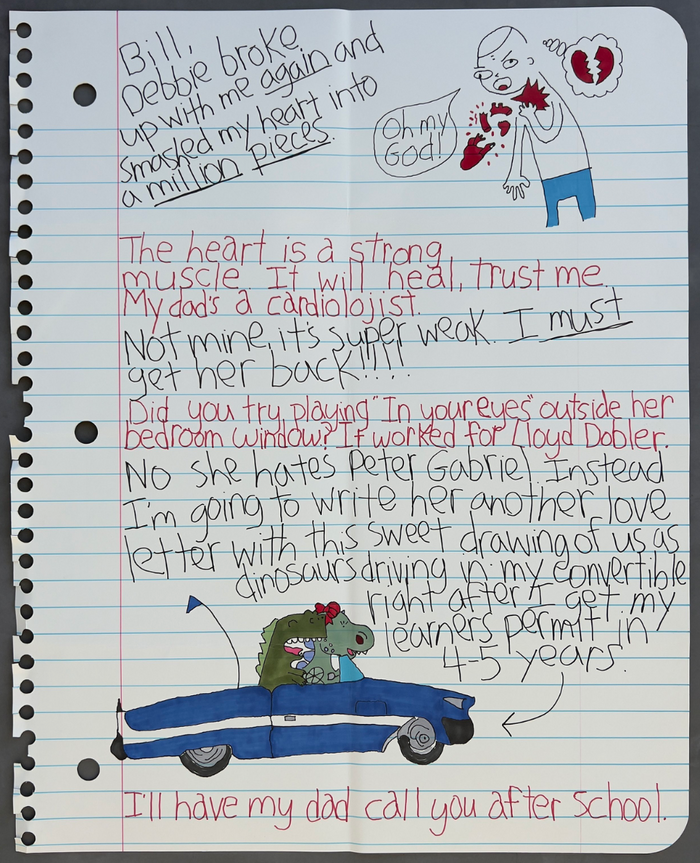 Bill,
Debbie broke
up with me again and
smashed my heart into
a million pieces.
Oh my
God!
The heart is a strong
muscle. It will heal, trust me.
My dad's a cardiolojist.
Not mine, it's super weak. I must
get her back!!!!
Did you try playing "In your eyes" outside her
bedroom window? It worked for Lloyd Dobler.
No she hates Peter Gabriel. Instead
I'm going to write her another love
letter with this sweet drawing of us as
dinosaurs driving in my convertible
right after I get my
learners permit in
4-5 years.
I'll have my dad call you after school.